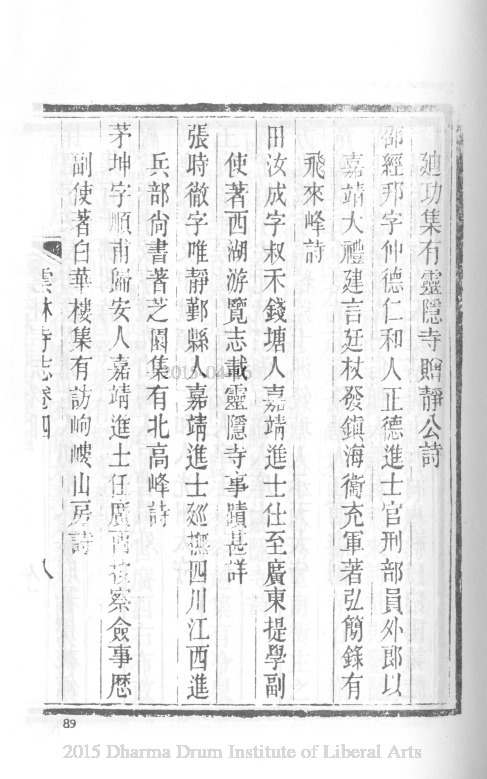 迪功集有靈隱寺贈靜公詩
邵經邦字仲德仁和人正德進士官刑部員外郎以
嘉靖大禮建言廷杖發鎮海衞充軍著弘簡錄有
飛來峰詩
田汝成字叔禾錢塘人嘉靖進士仕至廣東提學副
使著西湖游覽志載靈隱寺事蹟甚詳
張時徹字唯靜鄞縣人嘉靖進士廵撫四川江西進
兵部尙書著芝園集有北高峰詩
茅坤字順甫歸安人嘉靖進士任廣西按察僉事歷
副使著白華樓集有訪岣嶁山房詩
雲林寺志卷四 八
89
2015 Dharma Drum Institute of Liberal Arts